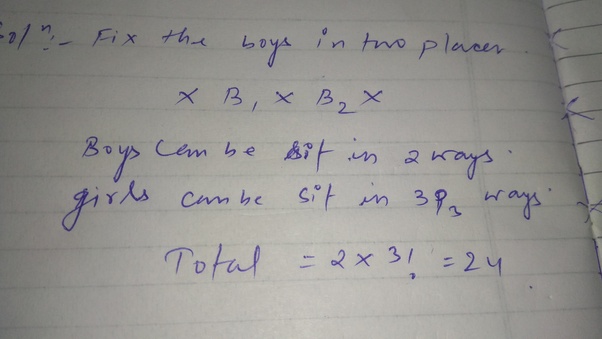 Solⁿ:- Fix the boys in two places.
× B₁ × B₂ ×
Boys can be sit in 2 ways.
girls can be sit in 3P₃ ways.
Total = 2 × 3! = 24